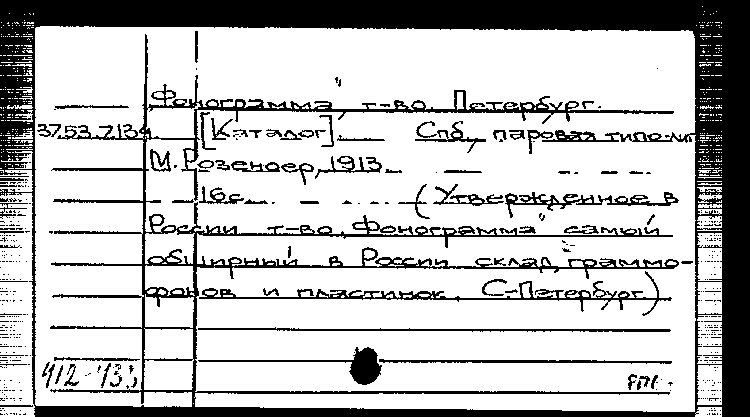 „Фонограмма", т-во. Петербург.
37.53.7134. [Каталог]. Спб., паровая типо-лит
М. Розеноер, 1913.
16с. (Утвержденное в
России т-во „Фонограмма" самый
обширный в России склад граммо-
фонов и пластинок. С.-Петербург)